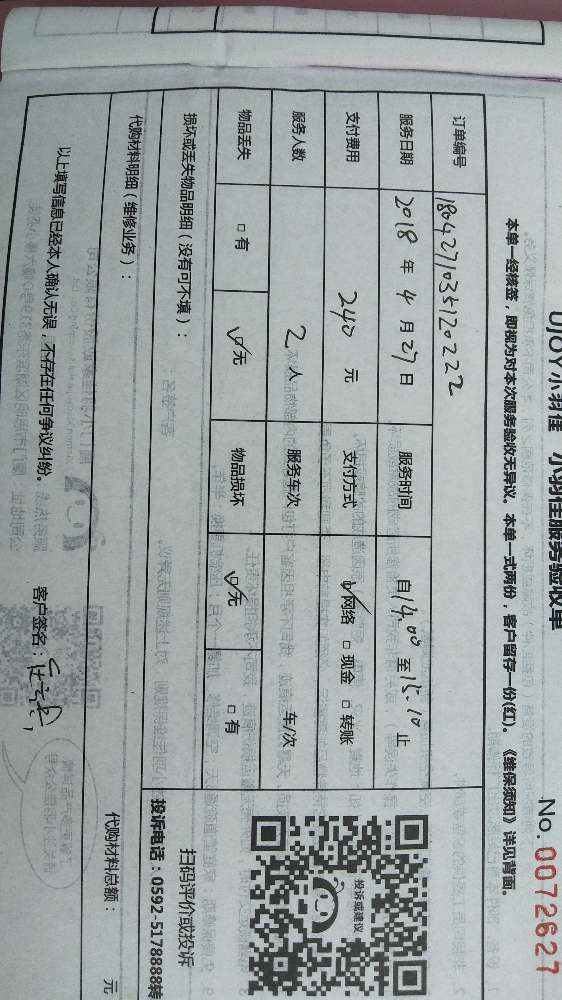 UJOY小羽佳 小羽佳服务验收单
No. 0072627
本单一经核签，即视为对本次服务验收无异议。本单一式两份，客户留存一份(红)。《维保须知》详见背面。
订单编号 1804271035120222
服务日期 2018 年 4 月 27 日 服务时间 自 14.00 至 15.10 止
支付费用 240 元 支付方式 ☑网络 □ 现金 □ 转账
服务人数 2 人 服务车次 车/次
物品丢失 □ 有 ☑无 物品损坏 ☑无 □ 有
损坏或丢失物品明细（没有可不填）：
投诉或建议
扫码评价或投诉
投诉电话：0592-5178888转
代购材料明细（维修业务）：
代购材料总额： 元
以上填写信息已经本人确认无误，不存在任何争议纠纷。
客户签名：